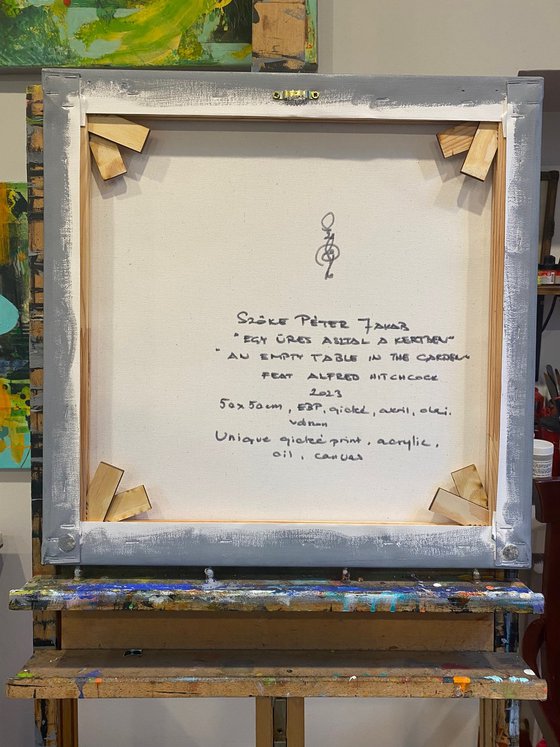 SZŐKE PÉTER JAKAB
"EGY ÜRES ASZTAL A KERTBEN"
"AN EMPTY TABLE IN THE GARDEN"
FEAT ALFRED HITCHCOCK
2023
50x50cm, EBP, giclé, akril, olaj,
vászon
Unique giclé print, acrylic,
oil, canvas